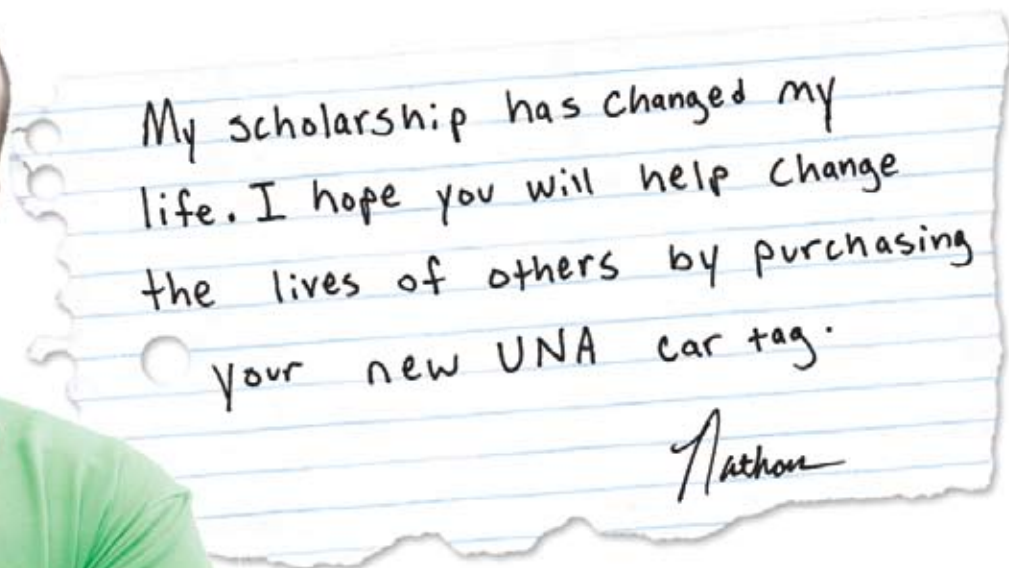 My scholarship has changed my
life. I hope you will help change
the lives of others by purchasing
your new UNA car tag.
Nathan